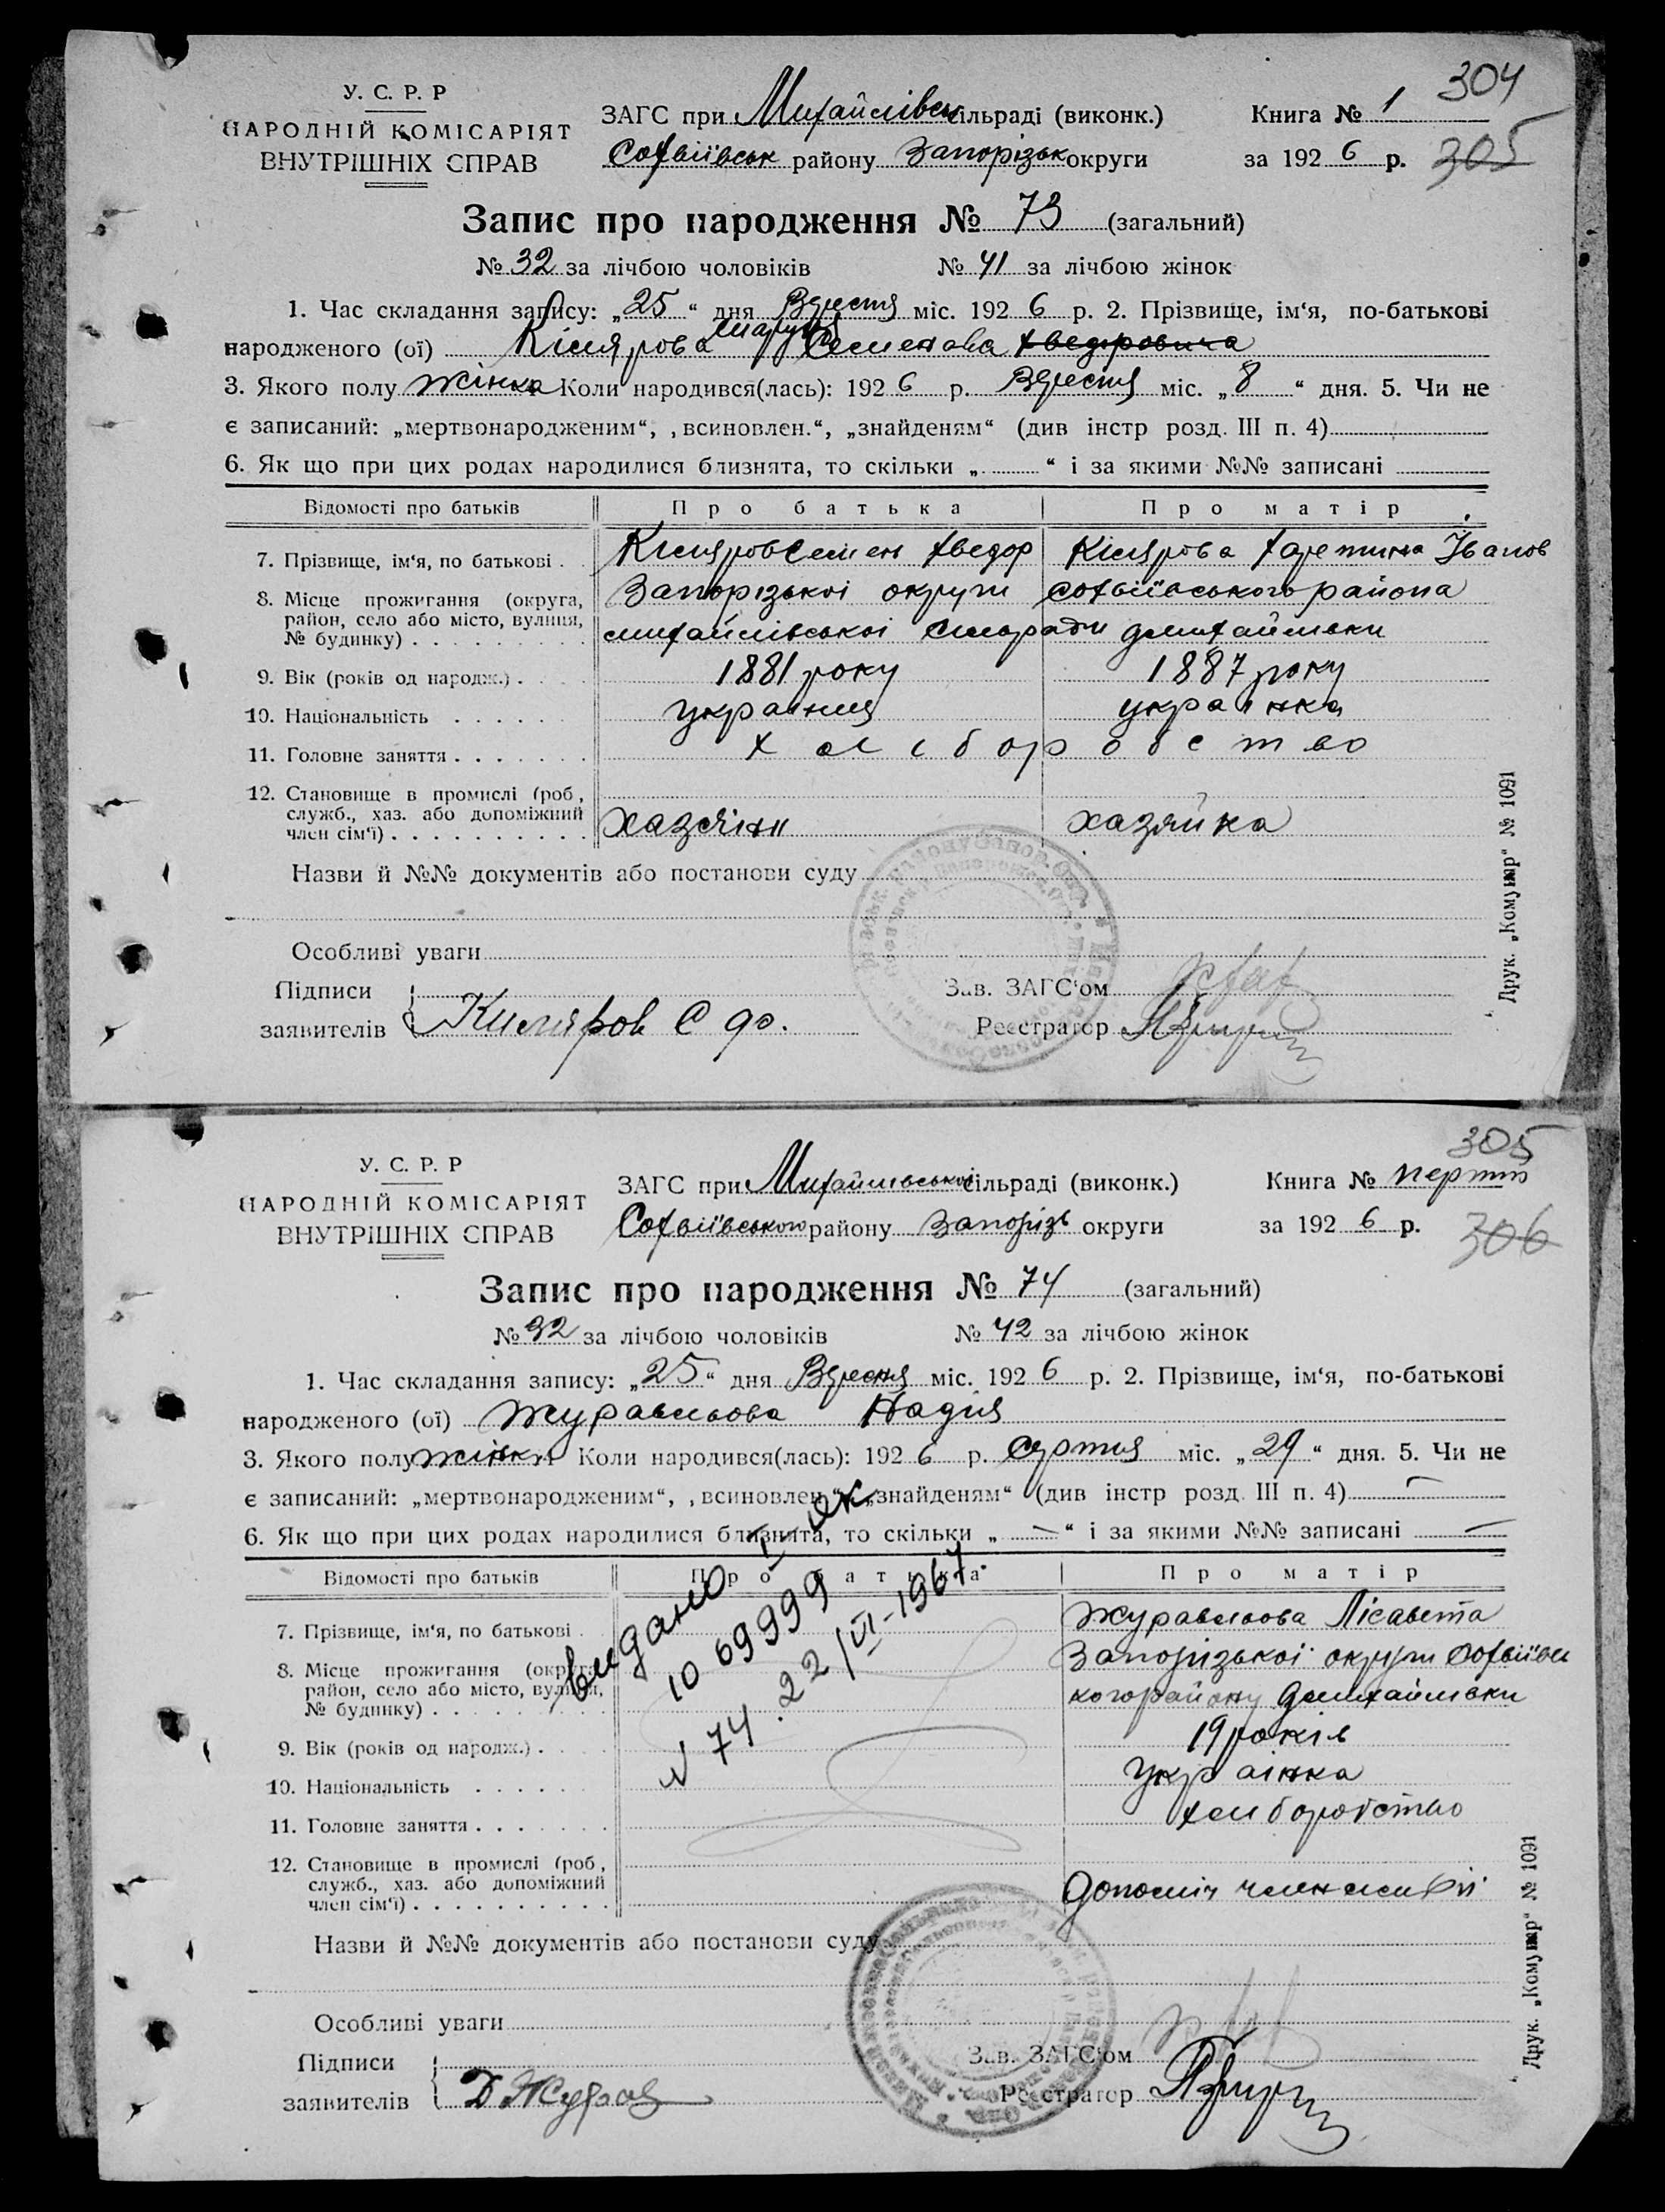 304
У. С. Р. Р
НАРОДНІЙ КОМІСАРІЯТ
ВНУТРІШНІХ СПРАВ
ЗАГС при Михайлівськ сільраді (виконк.)
Софвіївськ району Запорізьк округи
Книга № 1
за 1926 р. 305
Запис про народження № 73 (загальний)
№ 32 за лічбою чоловіків № 41 за лічбою жінок
1. Час складання запису: „25“ дня Вересня міс. 1926 р. 2. Прізвище, ім‘я, по-батькові
народженого (ої) Кіслярова Маруся Семенова Хведоровича
3. Якого полу жінка Коли народився(лась): 1926 р. Вересня міс. „8“ дня. 5. Чи не
є записаний: „мертвонародженим“, „всиновлен.“, „знайденям“ (див інстр розд. III п. 4)
6. Як що при цих родах народилися близнята, то скільки „ “ і за якими №№ записані
Відомості про батьків Про батька Про матір
7. Прізвище, ім‘я, по батькові . Кісляров Семен Хведор Кіслярова Іванов
8. Місце прожигання (округа, Запорізькоі округи софвіївського района
район, село або місто, вулиця, михайлівськоі сільради Дмихайлівки
№ будинку)
9. Вік (років од народж.) . 1881 року 1887 року
10. Національність украінець украінка
11. Головне заняття хліборобство
12. Становище в промислі (роб.,
служб., хаз. або допоміжний хазяїн хазяйка
член сім‘ї)
Назви й №№ документів або постанови суду
Особливі уваги
Підписи Зав. ЗАГС‘ом
заявителів Кисляров С Реєстратор
Друк. „Комунар“ № 1091
305
У. С. Р. Р
НАРОДНІЙ КОМІСАРІЯТ
ВНУТРІШНІХ СПРАВ
ЗАГС при Михайлівської сільраді (виконк.)
Софвіївського району Запорізь округи
Книга № перша
за 1926 р. 306
Запис про народження № 74 (загальний)
№ 32 за лічбою чоловіків № 42 за лічбою жінок
1. Час складання запису: „25“ дня Вересня міс. 1926 р. 2. Прізвище, ім‘я, по-батькові
народженого (ої) Журавльова Надія
3. Якого полу жінки Коли народився(лась): 1926 р. серпня міс. „29“ дня. 5. Чи не
є записаний: „мертвонародженим“, „всиновлен.“, „знайденям“ (див інстр розд. III п. 4) —
6. Як що при цих родах народилися близнята, то скільки „—“ і за якими №№ записані —
Відомості про батьків Про батька Про матір
видано I-ЯК
1069999
N 74. 22/VI-1967
7. Прізвище, ім‘я, по батькові . Журавльова Лісавета
8. Місце прожигання (округа, Запорізькоі округи Софвіївсь
район, село або місто, вулиця, кого району Дмихайлівки
№ будинку)
9. Вік (років од народж.) . 19 років
10. Національність украінка
11. Головне заняття хліборобство
12. Становище в промислі (роб.,
служб., хаз. або допоміжний допоміч член сімьї
член сім‘ї)
Назви й №№ документів або постанови суду
Особливі уваги
Підписи Зав. ЗАГС‘ом
заявителів Д Журав Реєстратор
Друк. „Комунар“ № 1091